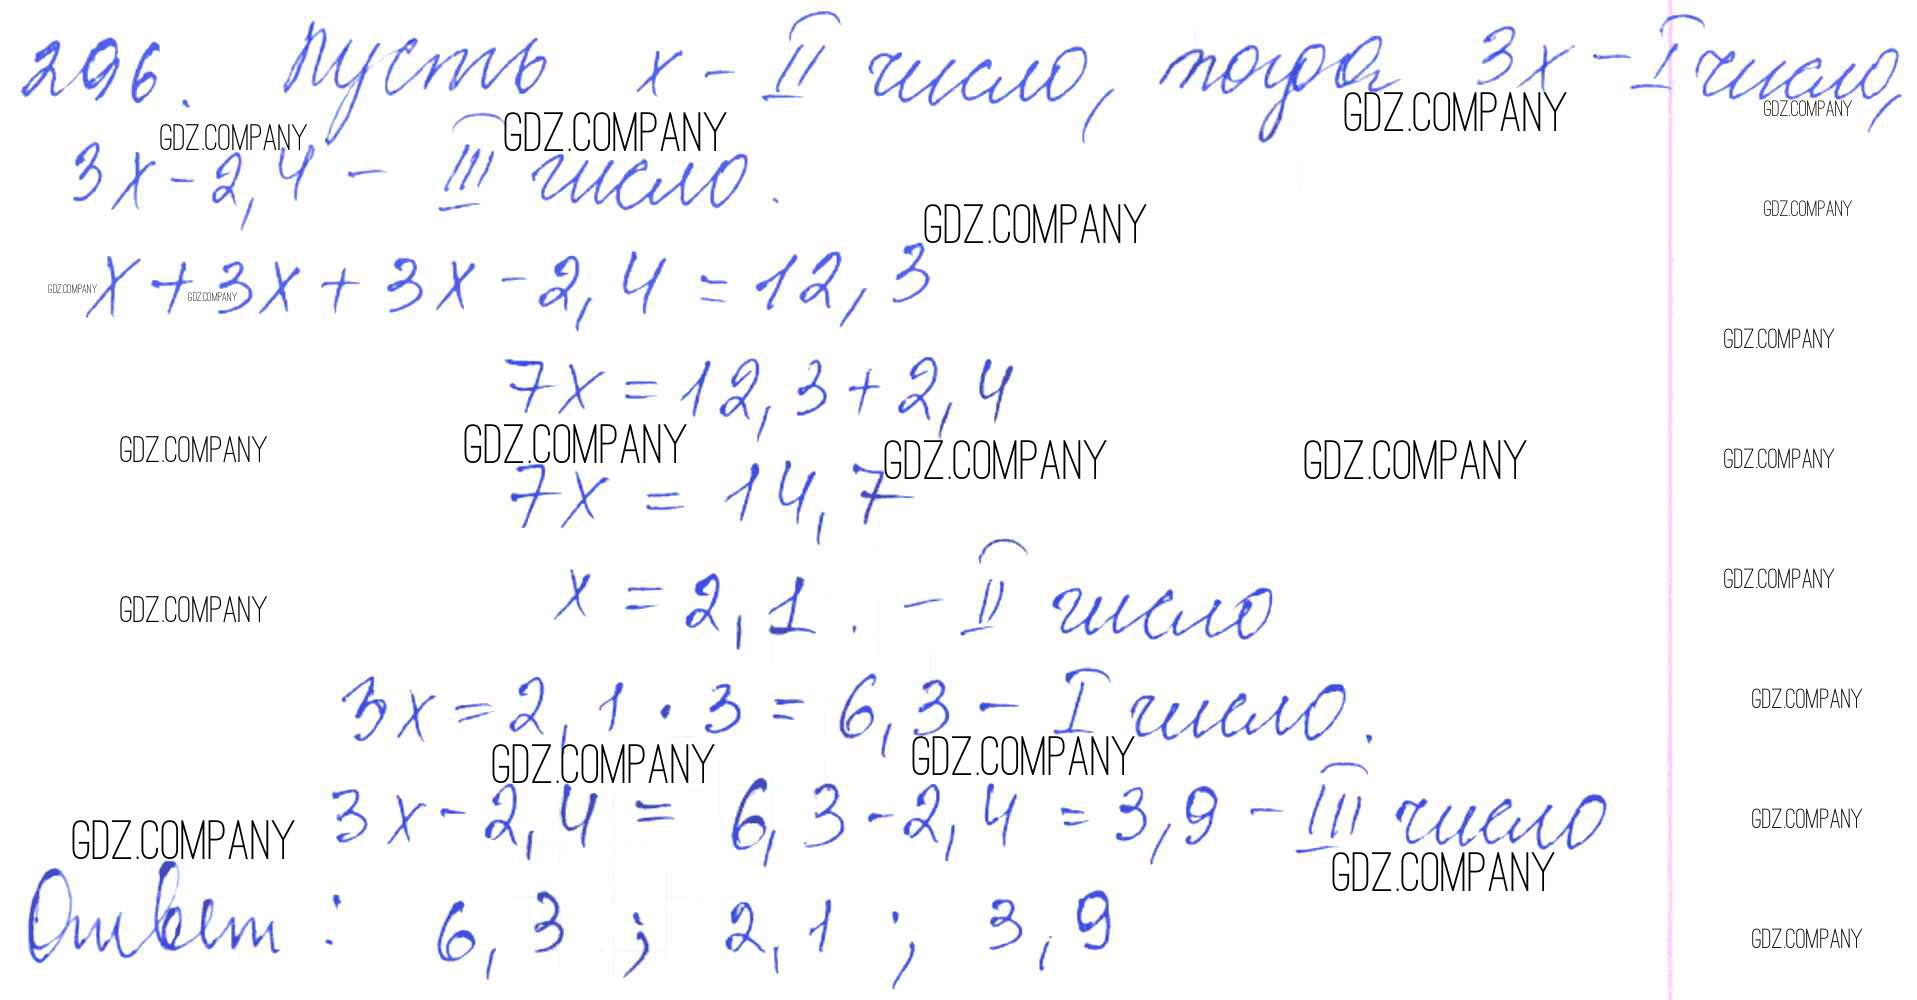 296. Пусть x - II число, тогда 3x - I число,
GDZ.COMPANY GDZ.COMPANY GDZ.COMPANY GDZ.COMPANY
3x - 2,4 - III число.
GDZ.COMPANY GDZ.COMPANY
x + 3x + 3x - 2,4 = 12,3
GDZ.COMPANY GDZ.COMPANY
GDZ.COMPANY
7x = 12,3 + 2,4
GDZ.COMPANY GDZ.COMPANY GDZ.COMPANY GDZ.COMPANY GDZ.COMPANY
7x = 14,7
GDZ.COMPANY
x = 2,1. - II число
GDZ.COMPANY
3x = 2,1 · 3 = 6,3 - I число.
GDZ.COMPANY
GDZ.COMPANY GDZ.COMPANY
3x - 2,4 = 6,3 - 2,4 = 3,9 - III число
GDZ.COMPANY GDZ.COMPANY
GDZ.COMPANY
Ответ: 6,3; 2,1; 3,9
GDZ.COMPANY